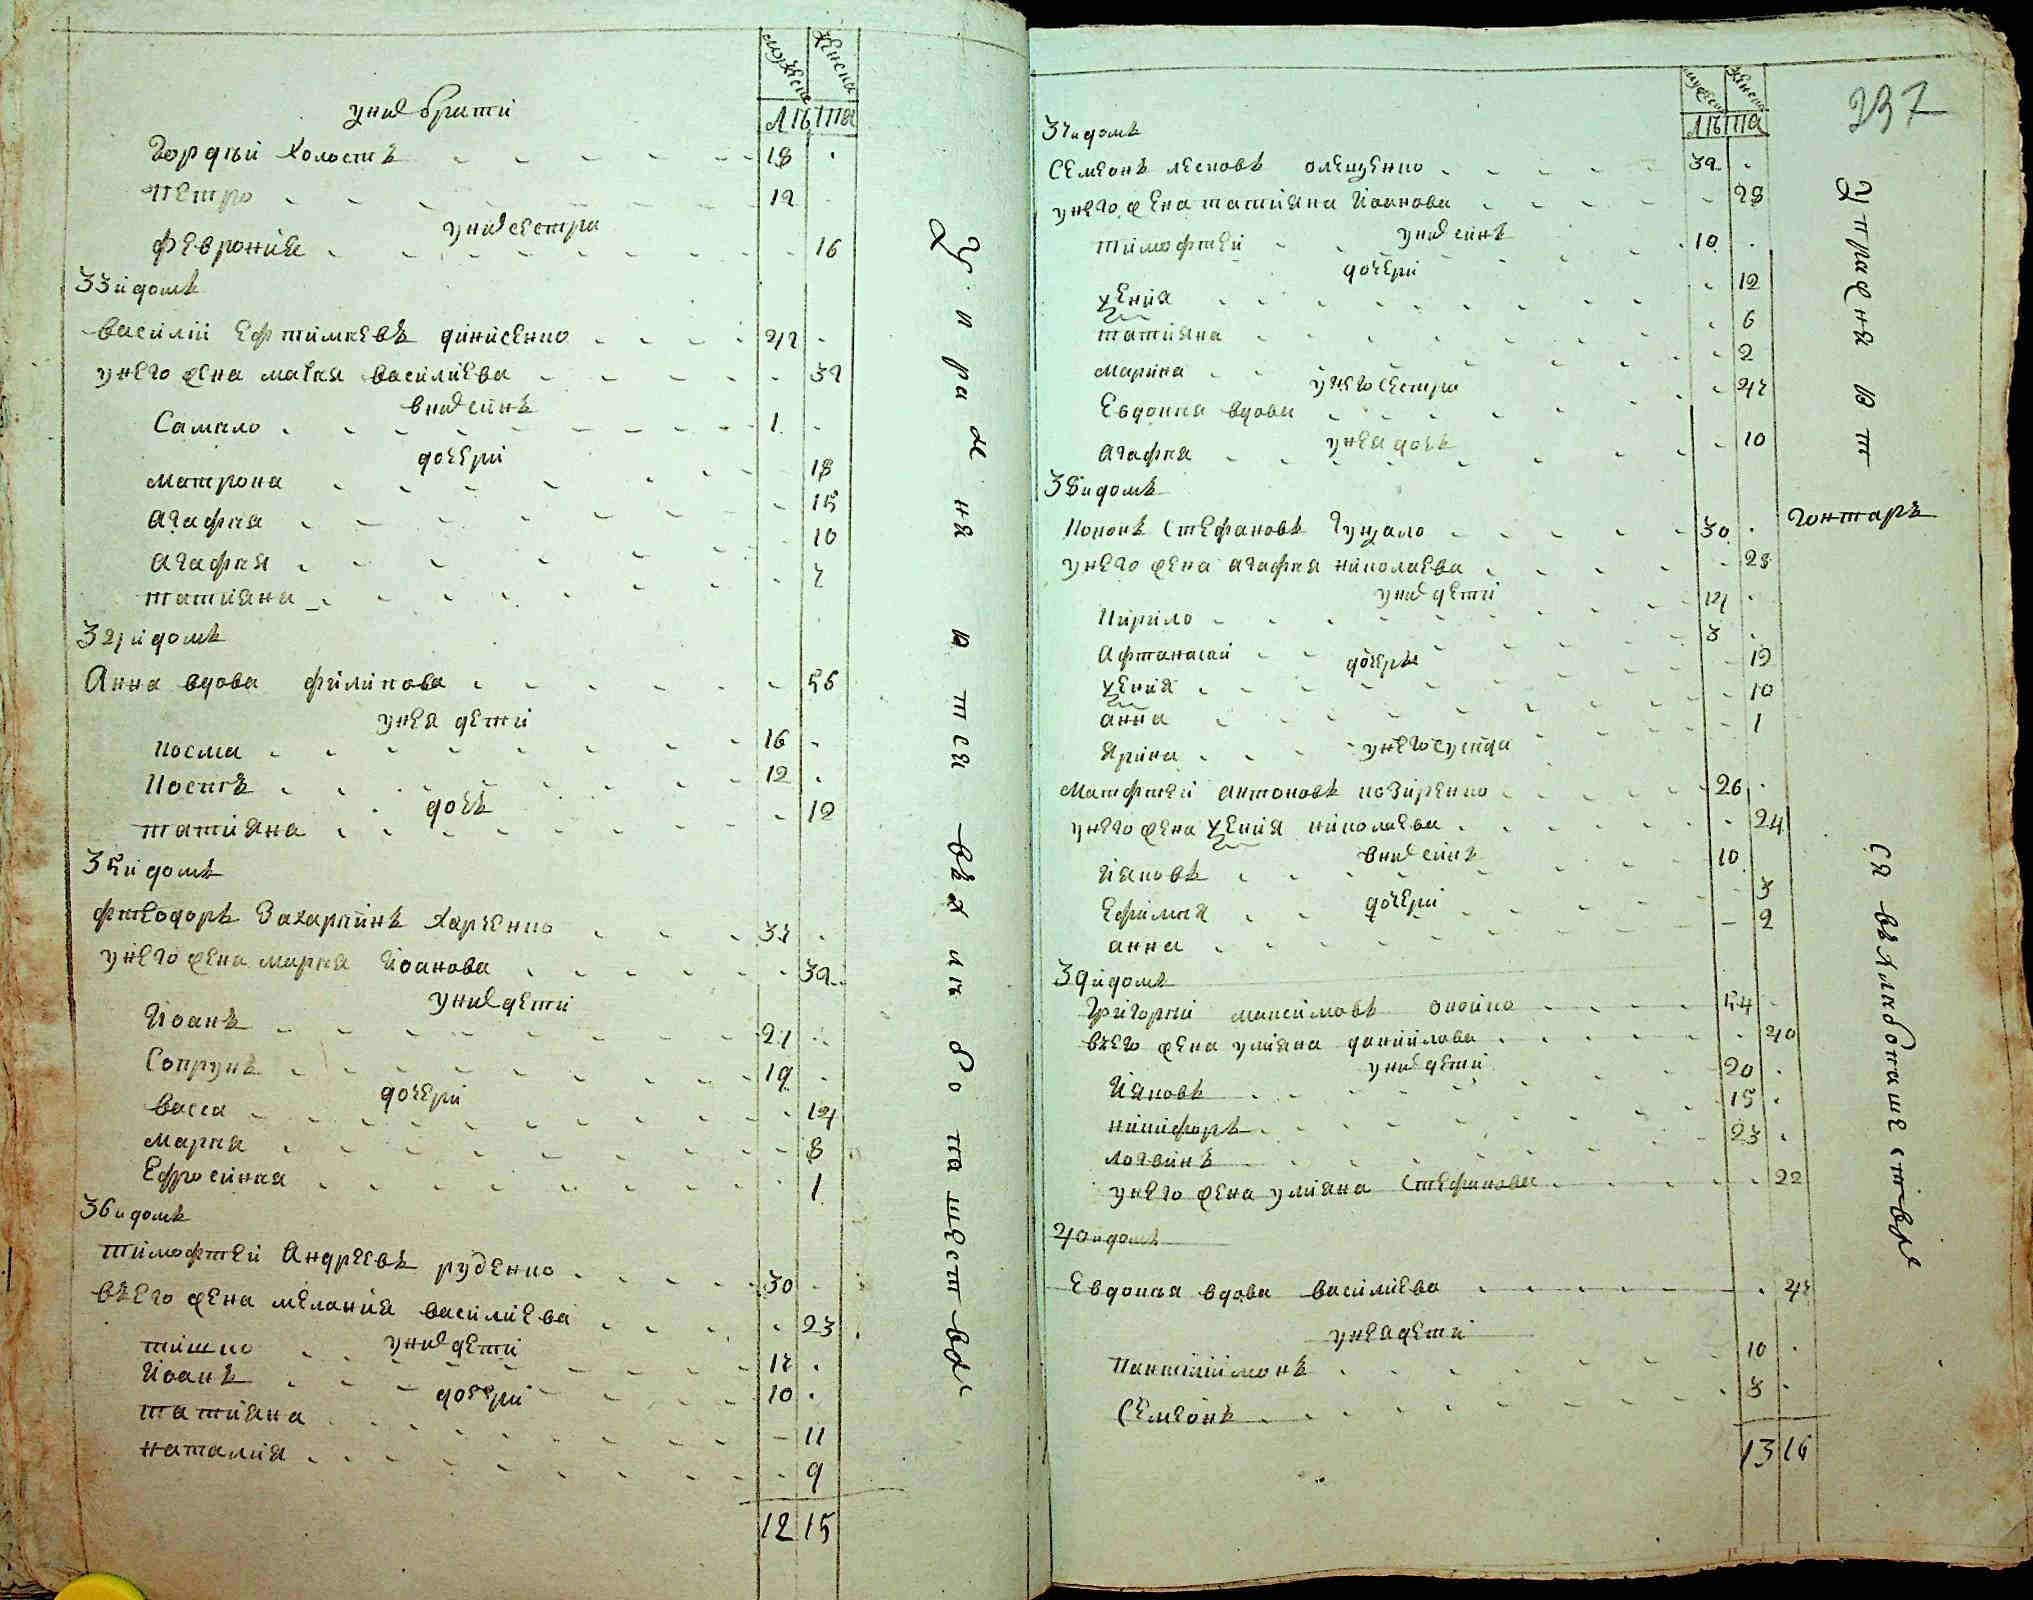 мужска женска
лѣта
у них брати
Гордѣй холостъ 18
Петро 12
у них сестра
Феврониѧ 16
33 й домъ
Василій Ефтимиевъ динисенко 42
у него жена Мариѧ василіева 37
в них синъ
Самило 1
дочери
Матрона 18
Агафиѧ 15
Агафиѧ 10
татиѧна 7
34 й домъ
Анна вдова филипова 56
у неѧ дети
Косма 16
Костѣ 12
дочъ
татиѧна 12
35 й домъ
Фтеодоръ Захариинъ Харченко 37
у него жена мариѧ Іоанова 39
у них дети
Іоанъ 21
Сопрунъ 19
дочери
Васса 14
Мариѧ 8
Ефросиниѧ 1
36 й домъ
тимофтей Андреевъ руденко 30
въ его жена меланиѧ василіева 23
у них дети
тишко 17
Іоанъ 10
дочери
татиѧна 11
наталиѧ 9
12 15
Упражнѧютсѧ въ хлѣбопашествѣ
237
мужска женска
лѣта
37 й домъ
Семеонъ лесковъ олещенко 39
у него жена татиѧна Іоанова 28
у них синъ
тимофтей 10
дочери
ѯениѧ 12
татиѧна 6
марина 2
у него сестра
Евдокиѧ вдова 47
у неѧ дочъ
Агафиѧ 10
38 й домъ
Кононъ Стефановъ Гунзало 30
гонтаръ
у него жена агафиѧ николаева 28
у них дети
Кирило 14
Афтанасий 8
дочерѣ
ѯениѧ 12
анна 10
Ѧрина 1
у него сусѣда
Матфтей антоновъ козиренко 26
у него жена ѯениѧ николаева 24
в них синъ
Іѧковъ 10
дочери
Ефимиѧ 3
анна 2
39 й домъ
Григорій максимовъ окойко 54
въ его жена улиѧна даниилова 40
у них дети
Іѧковъ 20
никифоръ 15
логвинъ 23
у него жена улиѧна Стефанова 22
40 й домъ
Евдокиѧ вдова василіева 47
у неѧ дети
Пантіліимонъ 10
Семеонъ 8
13 16
Упражнѧютсѧ въ хлѣбопашествѣ